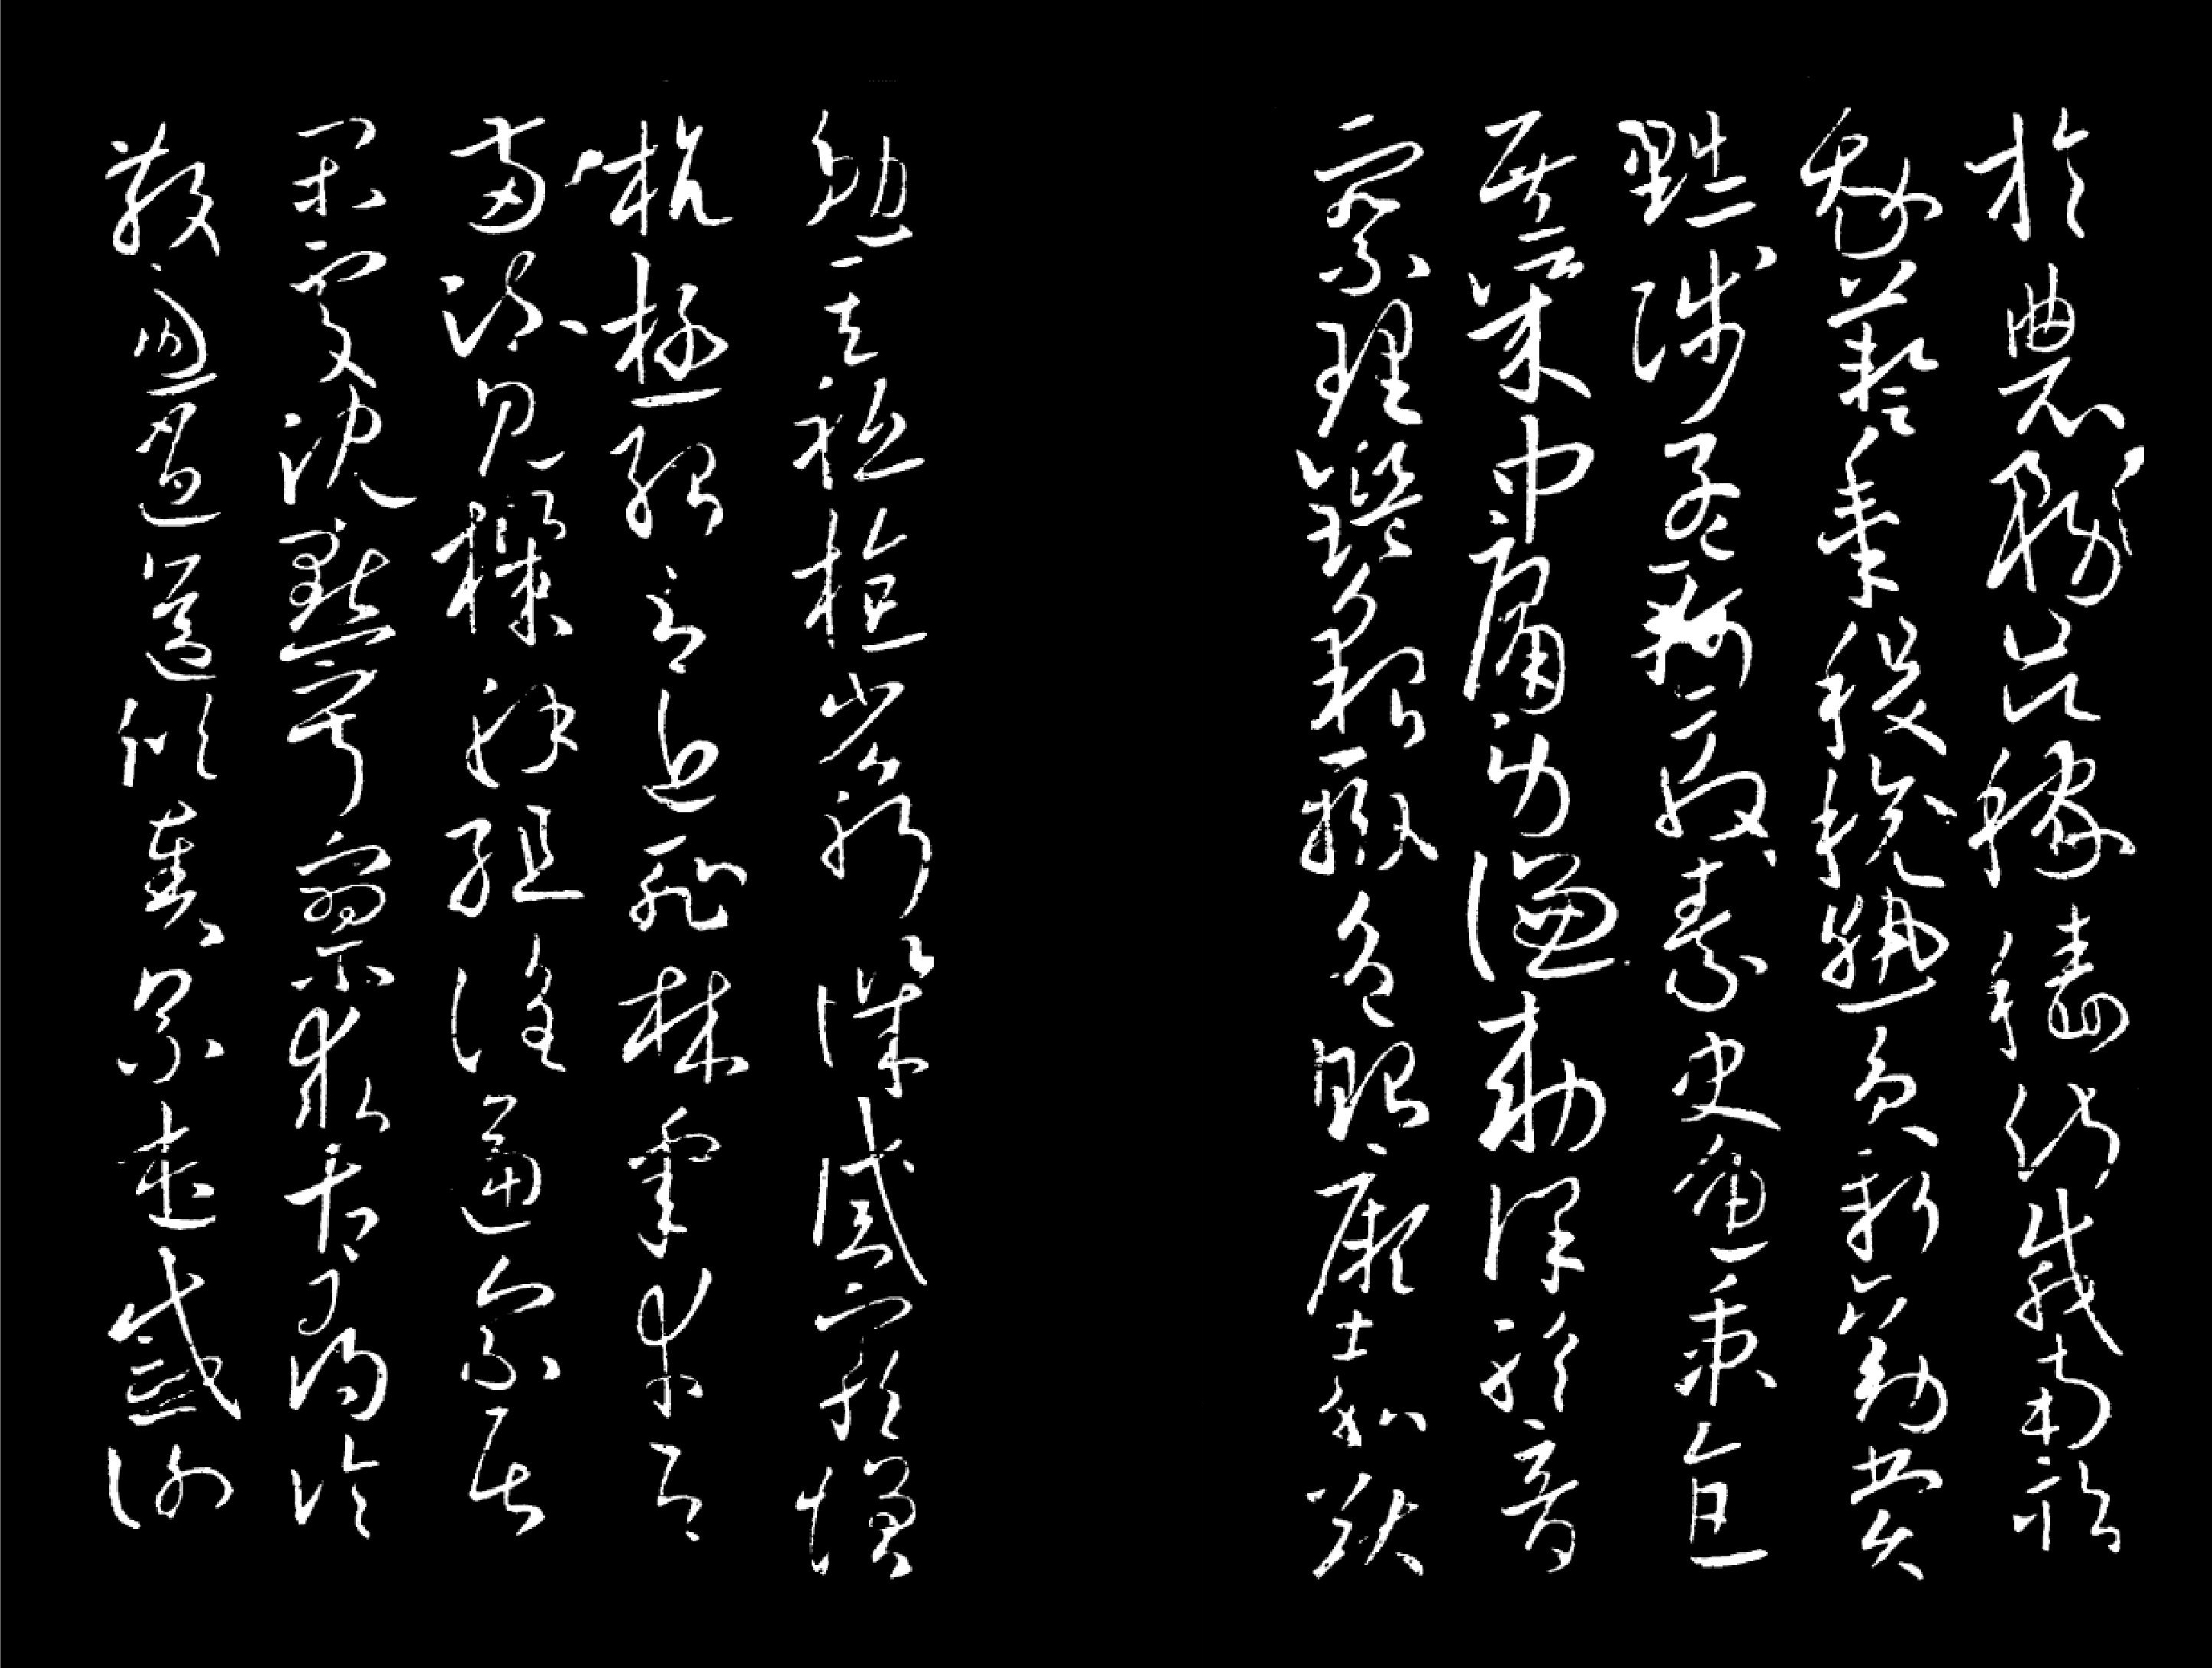 於農務茲稼穡俶載南畝
我藝黍稷稅熟貢新勸賞
黜陟孟軻敦素史魚秉直
庶幾中庸勞謙勑謹聆音
察理鑑貌辨色貽厥嘉猷
勉其祗植省躬譏誡寵增
抗極殆辱近恥林皋幸即
兩疏見機解組誰逼索居
閑處沈默寂寥求古尋論
散慮逍遙欣奏累遣慼謝